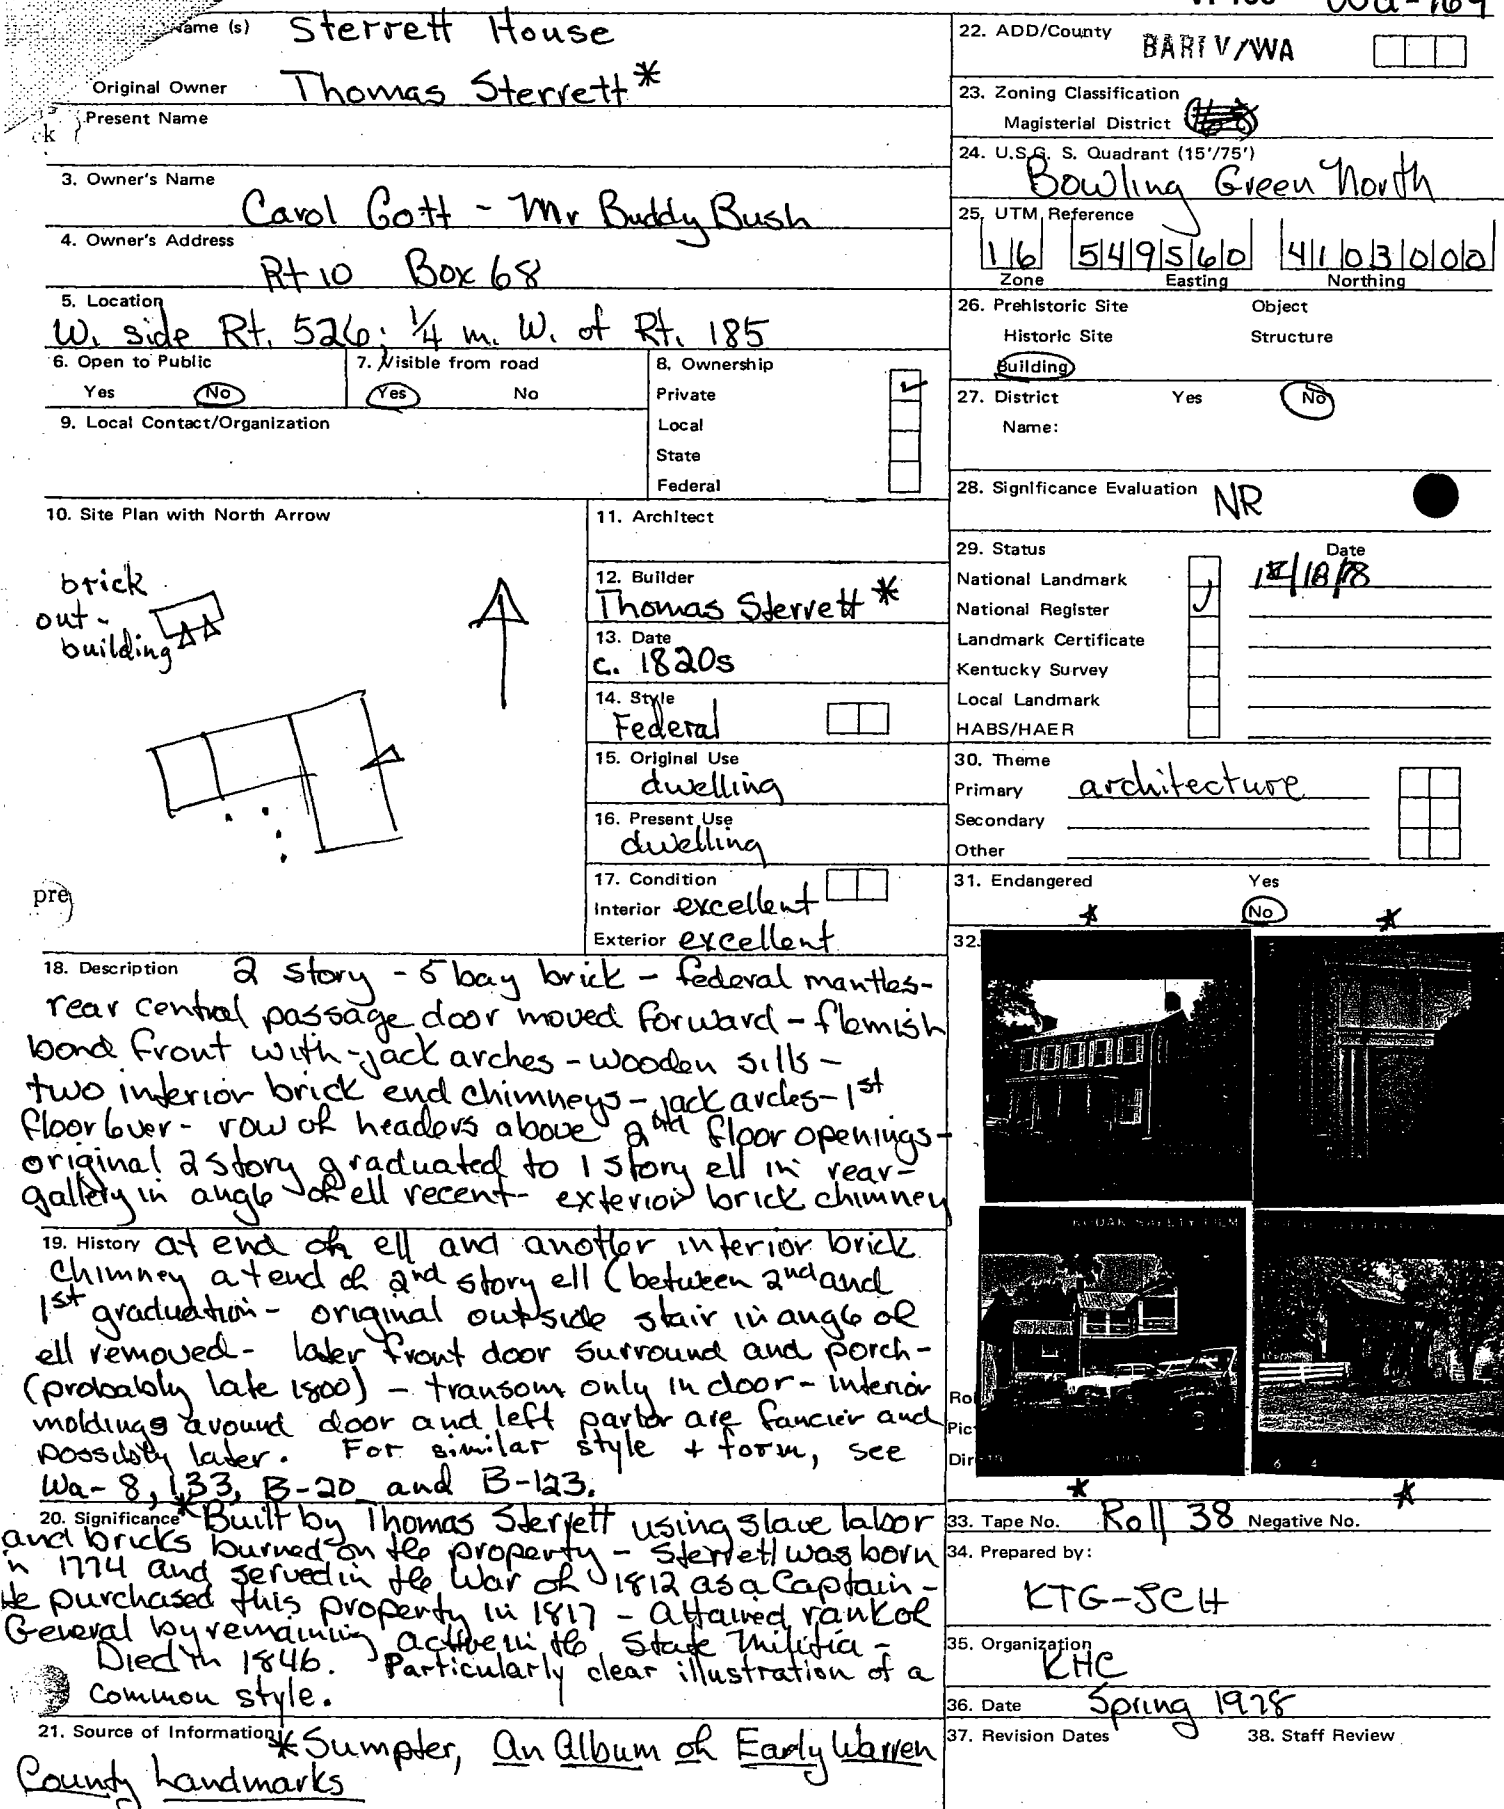 Name (s) Sterrett House
Original Owner Thomas Sterrett*
Present Name
3. Owner's Name
Carol Gott - Mr Buddy Bush
4. Owner's Address
Rt 10 Box 68
5. Location
W. side Rt. 526; 1/4 m. W. of Rt. 185
6. Open to Public
Yes No
7. Visible from road
Yes No
8. Ownership
Private
Local
State
Federal
9. Local Contact/Organization
10. Site Plan with North Arrow
brick
out-
building
11. Architect
12. Builder
Thomas Sterrett*
13. Date
c. 1820s
14. Style
Federal
15. Original Use
dwelling
16. Present Use
dwelling
17. Condition
Interior excellent
Exterior excellent
18. Description 2 story - 5 bay brick - federal mantles-
rear central passage door moved forward - flemish
bond front with - jack arches - wooden sills -
two interior brick end chimneys - jack arches - 1st
floor over - row of headers above 2nd floor openings -
original 2 story graduated to 1 story ell in rear -
gallery in angle of ell recent - exterior brick chimney
19. History at end of ell and another interior brick
chimney at end of 2nd story ell (between 2nd and
1st graduation - original outside stair in angle of
ell removed - later front door surround and porch -
(probably late 1800) - transom only in door - interior
moldings around door and left parlor are fancier and
possibly later. For similar style + form, see
Wa-8, 133, B-20 and B-123.
20. Significance *Built by Thomas Sterrett using slave labor
and bricks burned on the property - Sterrett was born
in 1774 and served in the War of 1812 as a Captain -
He purchased this property in 1817 - attained rank of
General by remaining active in the State Militia -
Died in 1846. Particularly clear illustration of a
common style.
21. Source of Information *Sumpter, An Album of Early Warren
County Landmarks
22. ADD/County BARIV/WA
23. Zoning Classification
Magisterial District
24. U.S.G. S. Quadrant (15'/75')
Bowling Green North
25. UTM Reference
16 549560 4103000
Zone Easting Northing
26. Prehistoric Site Object
Historic Site Structure
Building
27. District Yes No
Name:
28. Significance Evaluation NR
29. Status Date
National Landmark
National Register
Landmark Certificate
Kentucky Survey
Local Landmark
HABS/HAER
30. Theme
Primary architecture
Secondary
Other
31. Endangered Yes
No
32.
KODAK SAFETY FILM
Rol
Pic
Dir
33. Tape No. Roll 38 Negative No.
34. Prepared by:
KTG-JCH
35. Organization
KHC
36. Date Spring 1978
37. Revision Dates 38. Staff Review